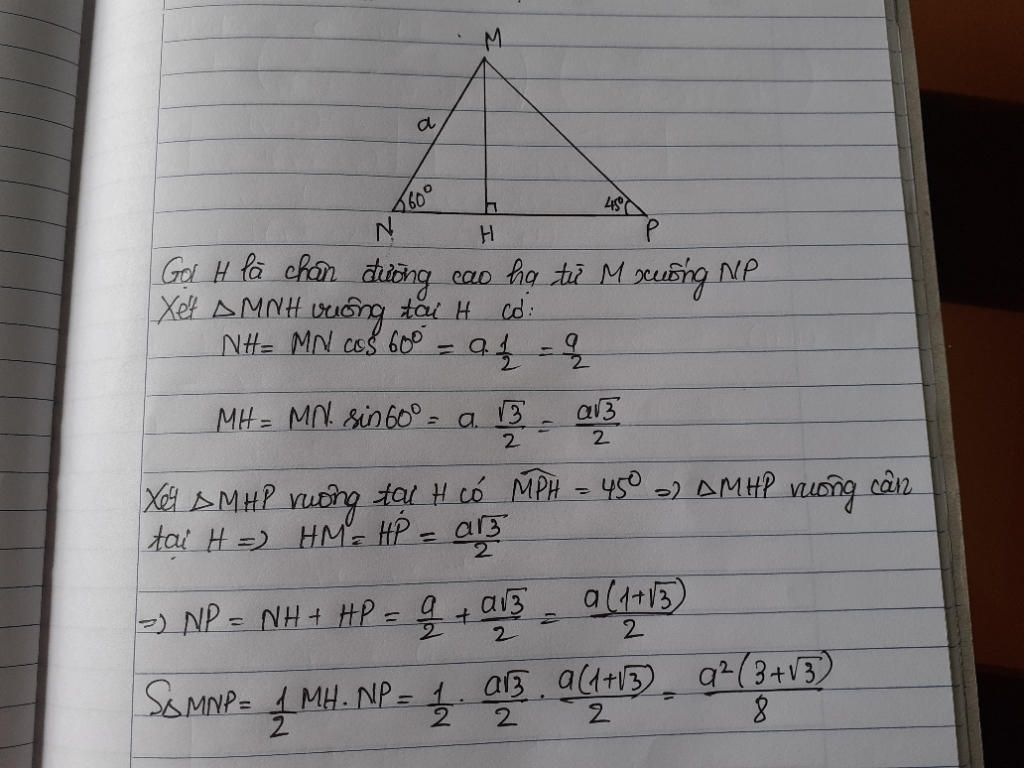 M
a
60° 45°
N H P
Gọi H là chân đường cao hạ từ M xuống NP
Xét △MNH vuông tại H có:
NH = MN cos 60° = a. 1/2 = a/2
MH = MN. sin60° = a. √3/2 = a√3/2
Xét △MHP vuông tại H có MPH = 45° => △MHP vuông cân
tại H => HM = HP = a√3/2
=> NP = NH + HP = a/2 + a√3/2 = a(1+√3)/2
S△MNP = 1/2 MH. NP = 1/2 . a√3/2 . a(1+√3)/2 = a²(3+√3)/8